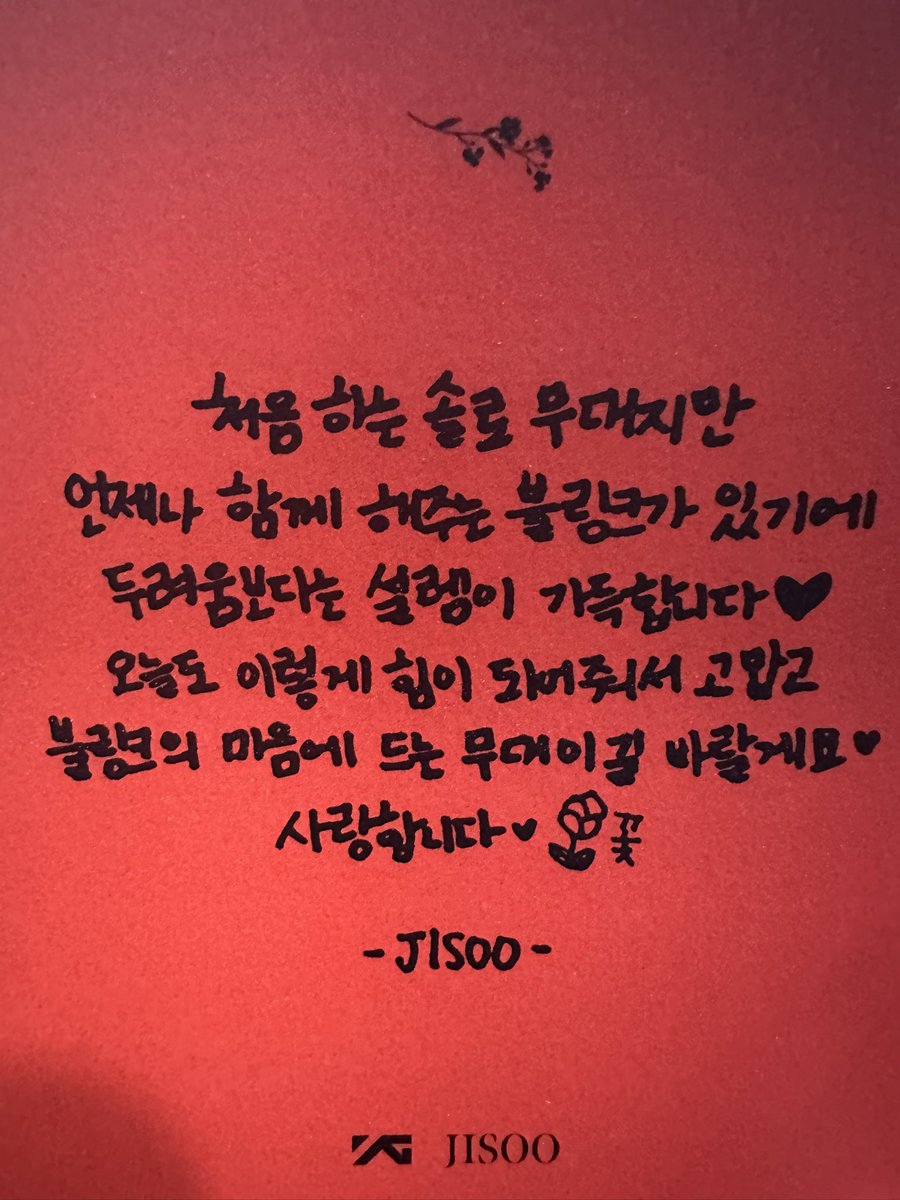 처음 하는 솔로 무대지만
언제나 함께 해주는 블링크가 있기에
두려움보다는 설렘이 가득합니다♥
오늘도 이렇게 힘이 되어줘서 고맙고
블링크의 마음에 드는 무대이길 바랄게요♥
사랑합니다♥ 꽃
-JISOO-
YG JISOO